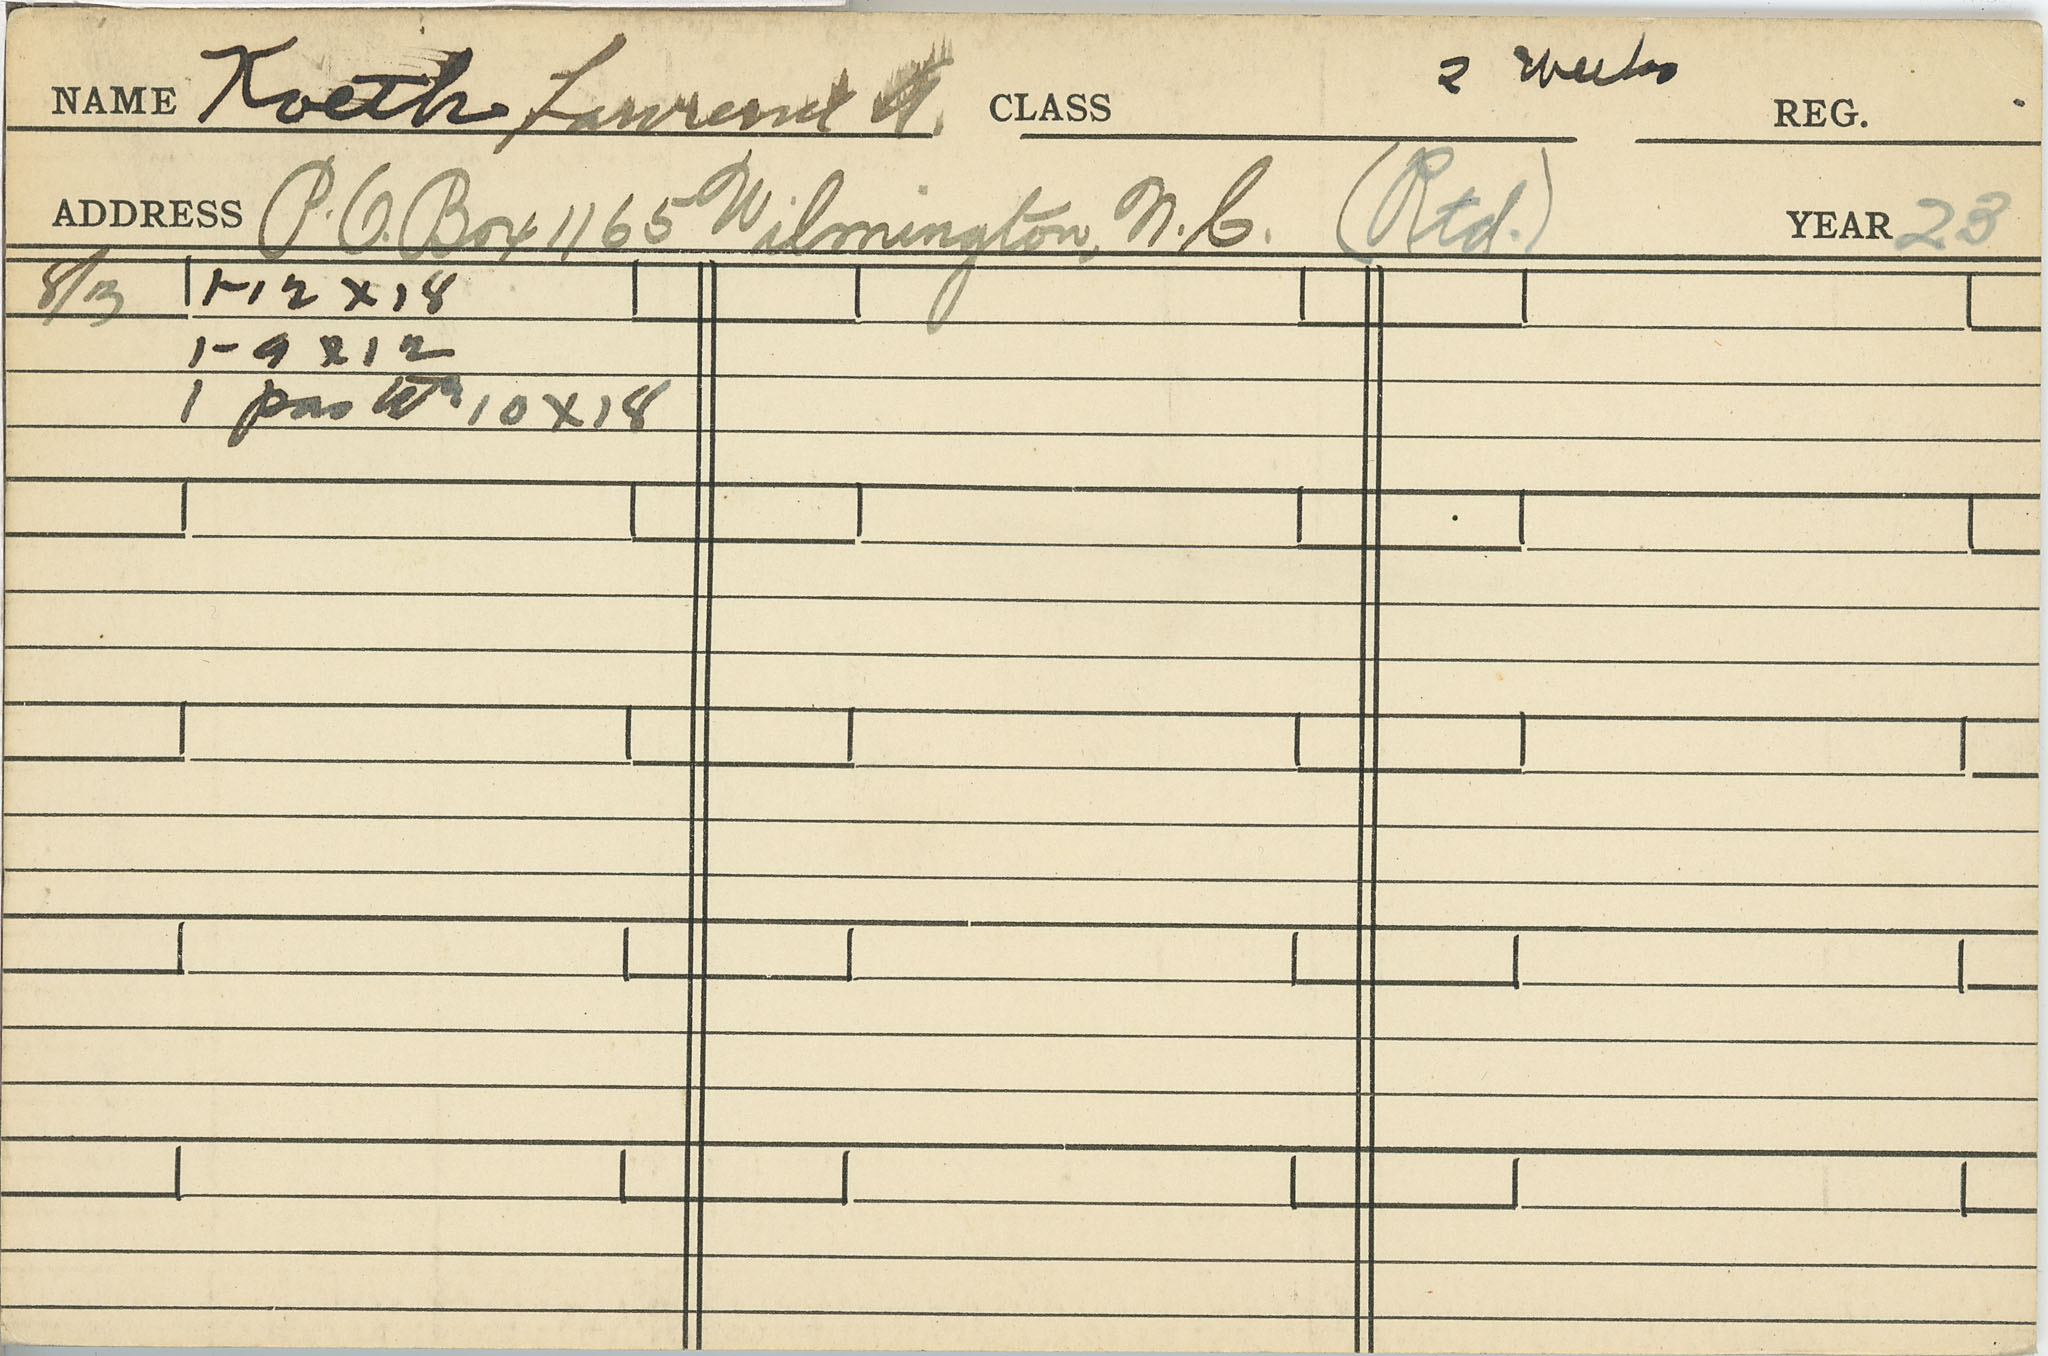 NAME Koeth Lawrence A. CLASS 2 weeks REG.
ADDRESS P.O. Box 1165 Wilmington, N.C. (Rtd.) YEAR 23
8/3 1-12 x 18
1-9 x 12
1 10 x 18